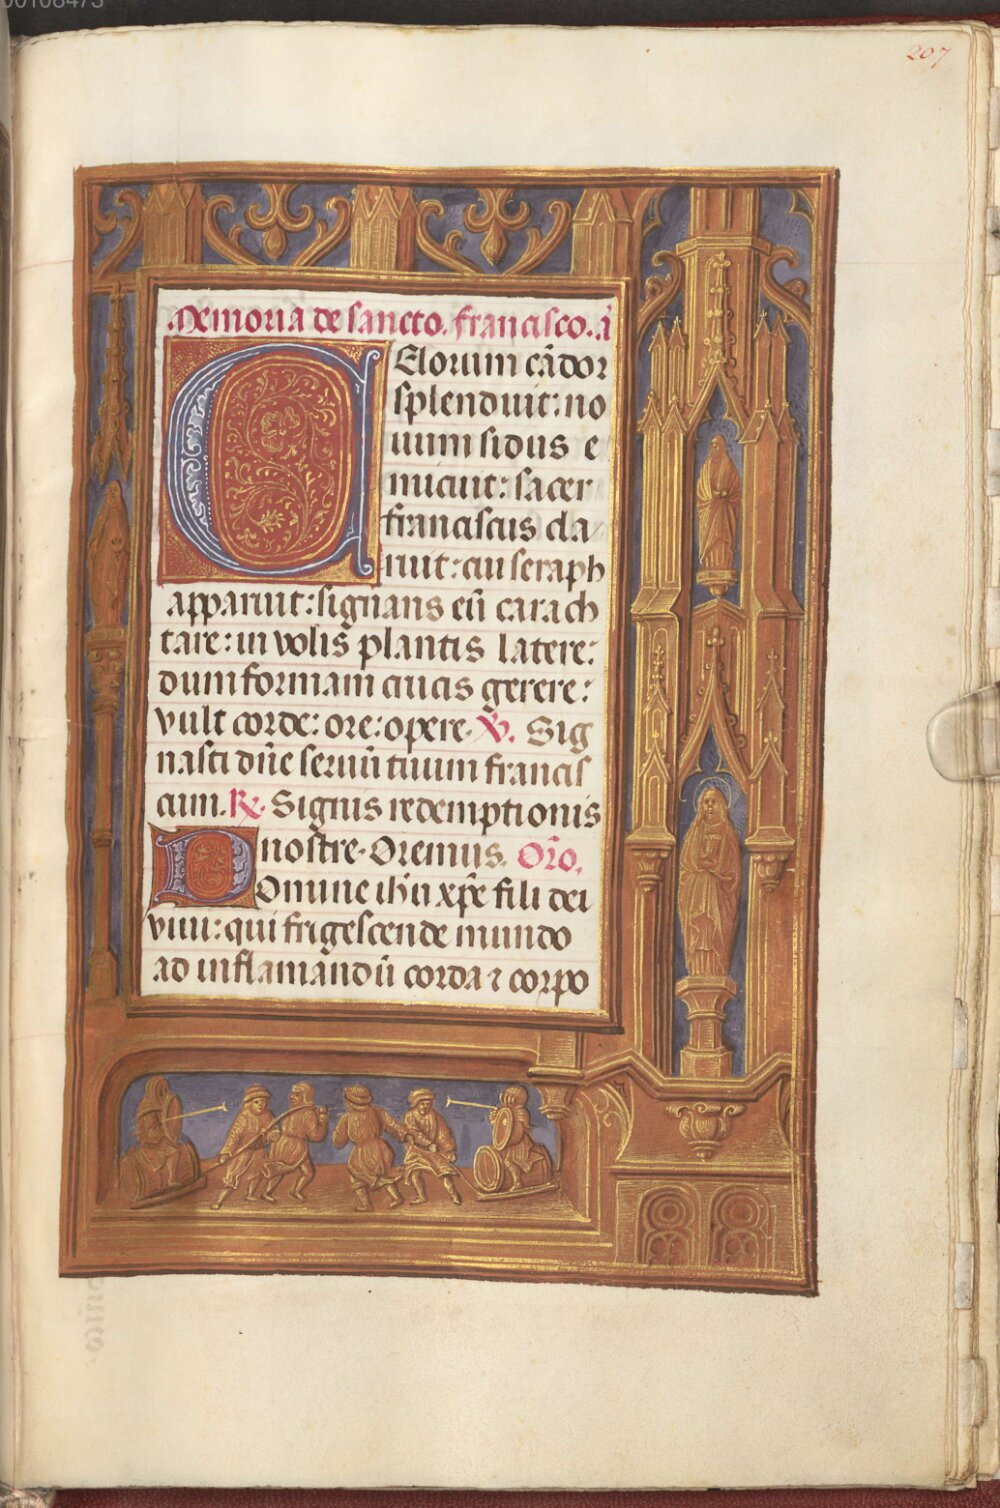 00108473
207
Memoria de sancto. francisco. ā
CElorum cādor
splenduit: no
uum sidus e
micuit: sacer
franciscus cla
ruit: cui seraph
apparuit: signans eū carach
tare: in volis plantis latere:
dum formam crucis gerere:
vult corde: ore: opere. V. Sig
nasti dn̄e seruū tuum francis
cum. R. Signis redemptionis
nostre. Oremus. Or̄o.
DOmine ih̄u xp̄e fili dei
viui: qui frigescende mundo
ad inflamandū corda ⁊ corpo